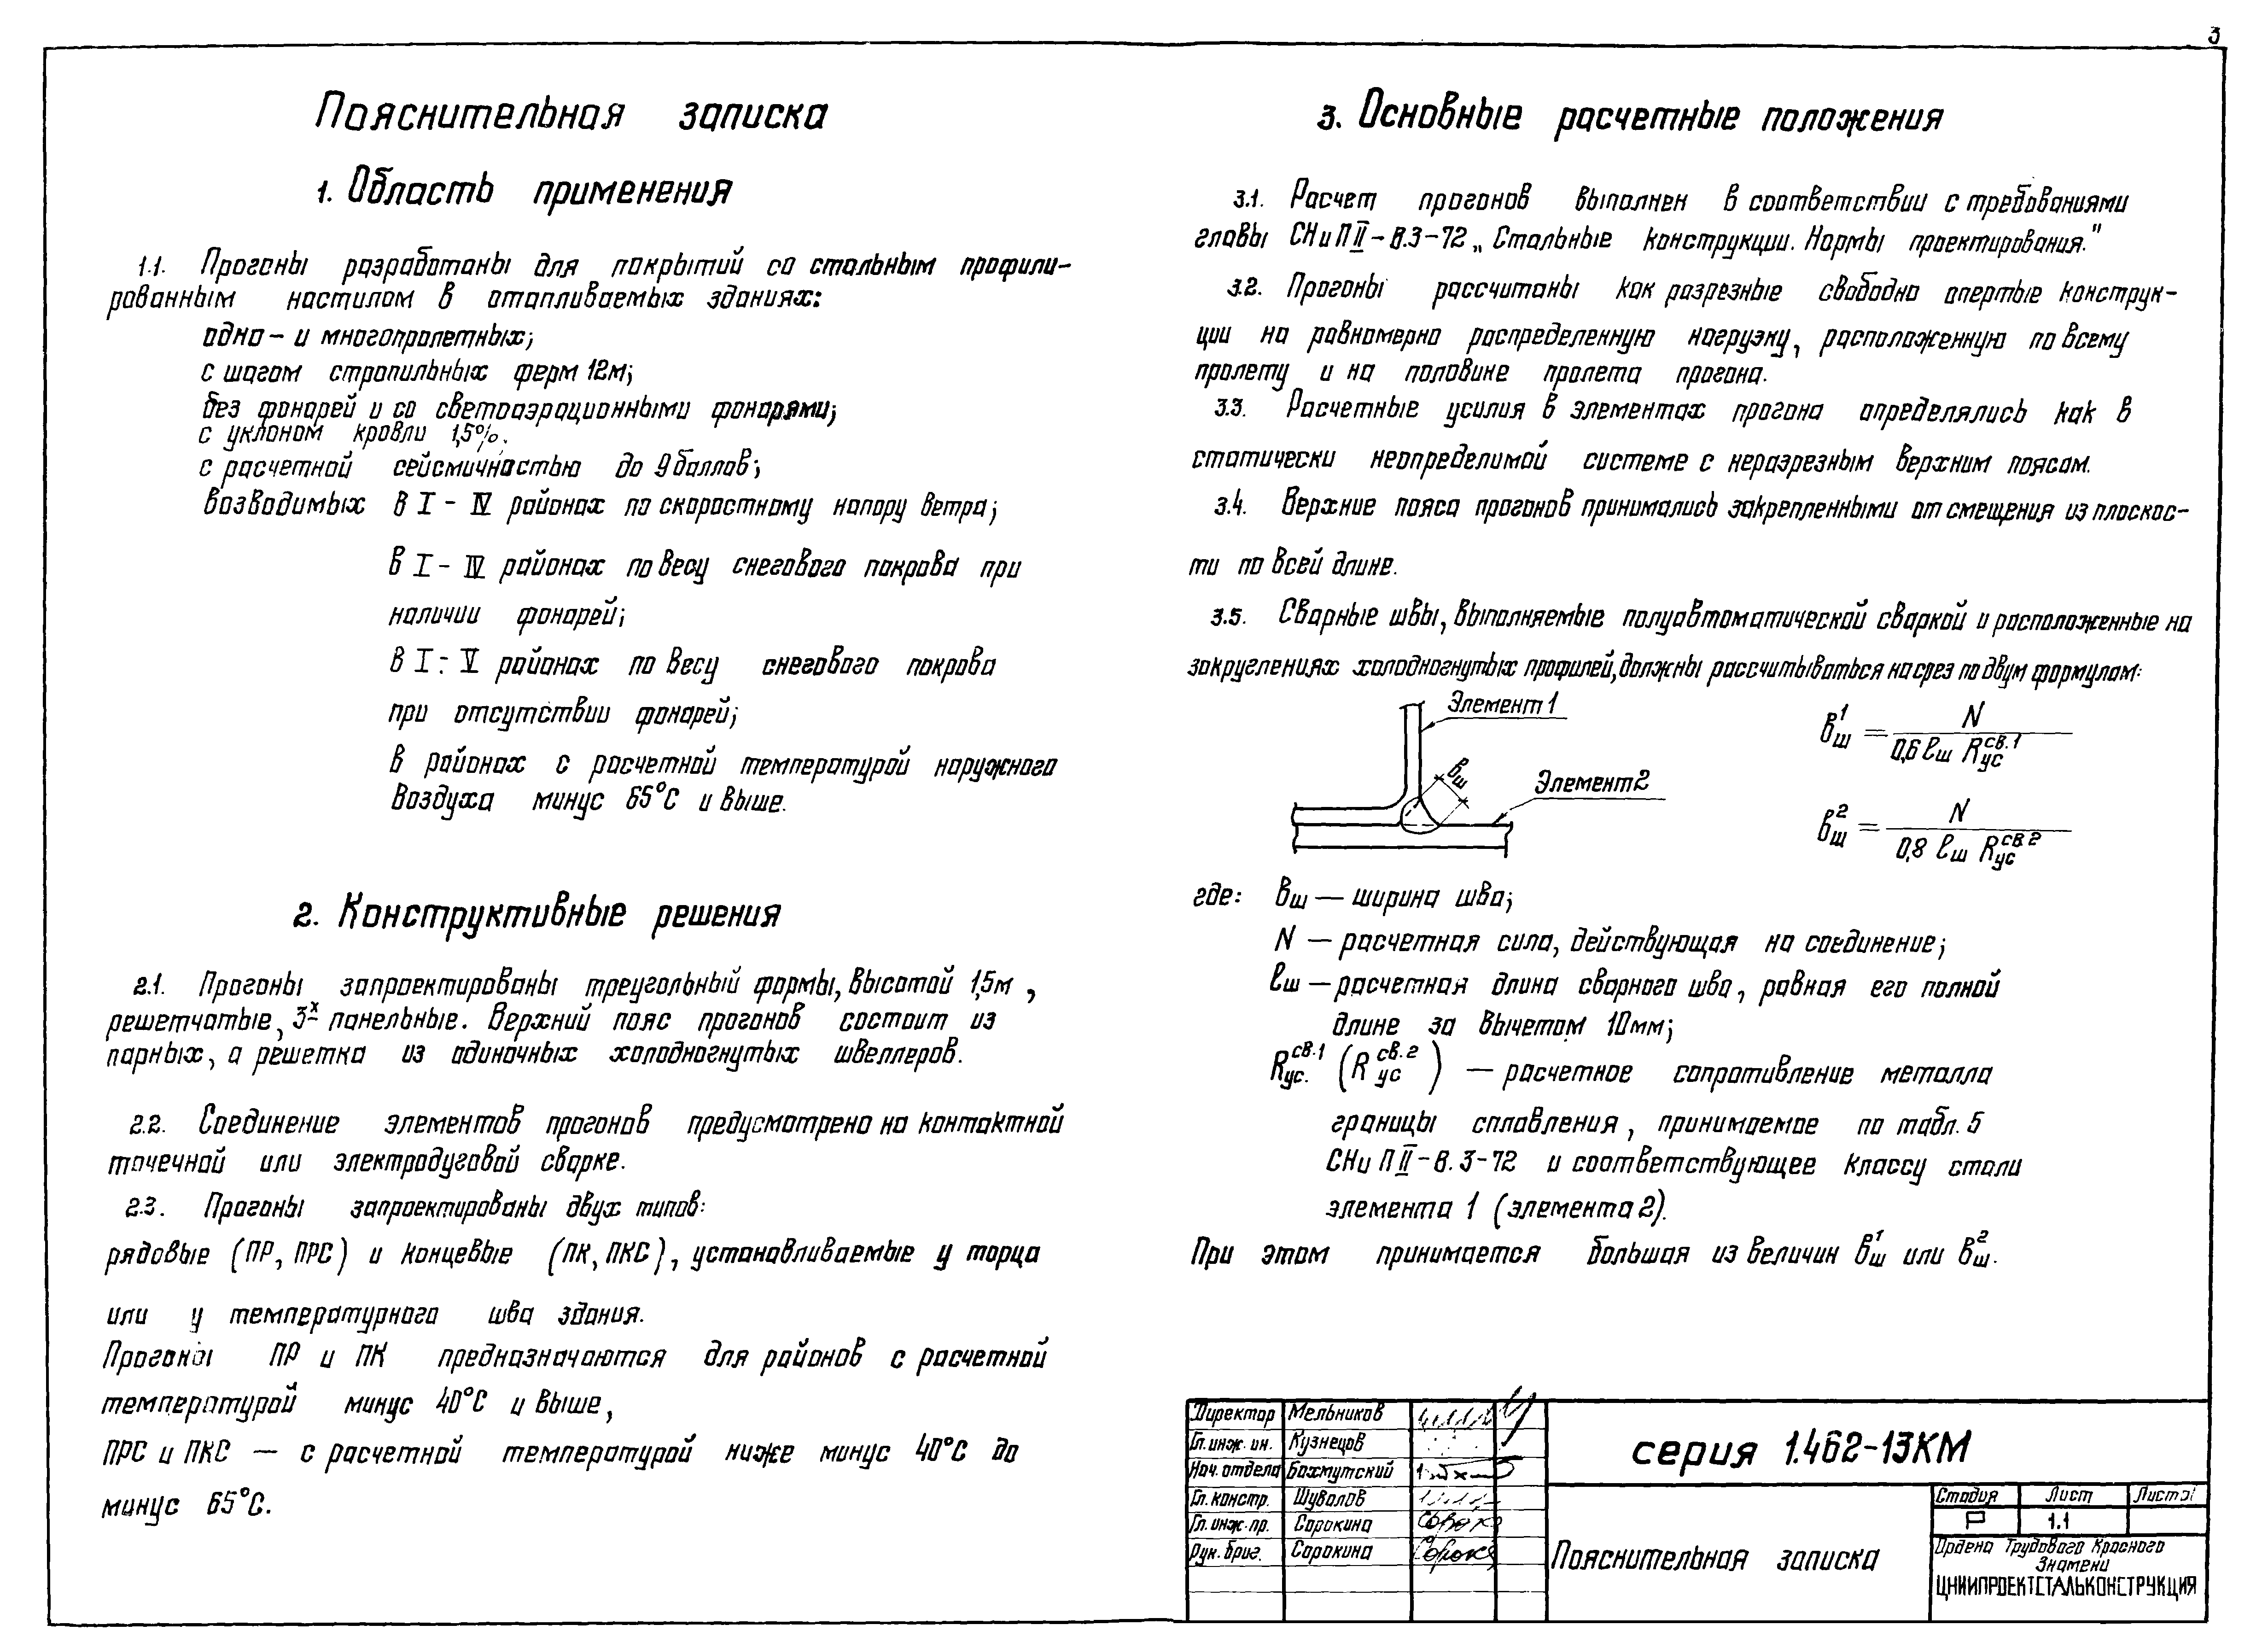 3
Пояснительная записка
1. Область применения
1.1. Прогоны разработаны для покрытий со стальным профили-
рованным настилом в отапливаемых зданиях:
одно- и многопролетных;
с шагом стропильных ферм 12м;
без фонарей и со светоаэрационными фонарями;
с уклоном кровли 1,5%.
с расчетной сейсмичностью до 9 баллов;
возводимых в I - IV районах по скоростному напору ветра;
в I - IV районах по весу снегового покрова при
наличии фонарей;
в I ÷ V районах по весу снегового покрова
при отсутствии фонарей;
в районах с расчетной температурой наружного
воздуха минус 65°С и выше.
2. Конструктивные решения
2.1. Прогоны запроектированы треугольный формы, высотой 1,5м,
решетчатые, 3х панельные. Верхний пояс прогонов состоит из
парных, а решетка из одиночных холодногнутых швеллеров.
2.2. Соединение элементов прогонов предусмотрено на контактной
точечной или электродуговой сварке.
2.3. Прогоны запроектированы двух типов:
рядовые (ПР, ПРС) и концевые (ПК, ПКС), устанавливаемые у торца
или у температурного шва здания.
Прогоны ПР и ПК предназначаются для районов с расчетной
температурой минус 40°С и выше,
ПРС и ПКС — с расчетной температурой ниже минус 40°С до
минус 65°С.
3. Основные расчетные положения
3.1. Расчет прогонов выполнен в соответствии с требованиями
главы СНиП II-В.3-72 „Стальные конструкции. Нормы проектирования."
3.2. Прогоны рассчитаны как разрезные свободно опертые конструк-
ции на равномерно распределенную нагрузку, расположенную по всему
пролету и на половине пролета прогона.
3.3. Расчетные усилия в элементах прогона определялись как в
статически неопределимой системе с неразрезным верхним поясом.
3.4. Верхние пояса прогонов принимались закрепленными от смещения из плоскос-
ти по всей длине.
3.5. Сварные швы, выполняемые полуавтоматической сваркой и расположенные на
закруглениях холодногнутых профилей, должны рассчитываться на срез по двум формулам:
Элемент 1
вш
Элемент 2
в¹ш = N / 0,6 ℓш Rуссв.1
в²ш = N / 0,8 ℓш Rуссв.2
где: вш — ширина шва;
N — расчетная сила, действующая на соединение;
ℓш — расчетная длина сварного шва, равная его полной
длине за вычетом 10мм;
Rус.св.1 (Rуссв.2) — расчетное сопротивление металла
границы сплавления, принимаемое по табл. 5
СНиП II-В.3-72 и соответствующее классу стали
элемента 1 (элемента 2).
При этом принимается большая из величин в¹ш или в²ш.
Директор Мельников
Гл. инж. ин. Кузнецов
Нач. отдела Бахмутский
Гл. констр. Шувалов
Гл. инж. пр. Сорокина
Рук. бриг. Сорокина
серия 1.462-13КМ
Пояснительная записка
Стадия Лист Листов
Р 1.1
Ордена Трудового Красного
Знамени
ЦНИИПРОЕКТСТАЛЬКОНСТРУКЦИЯ